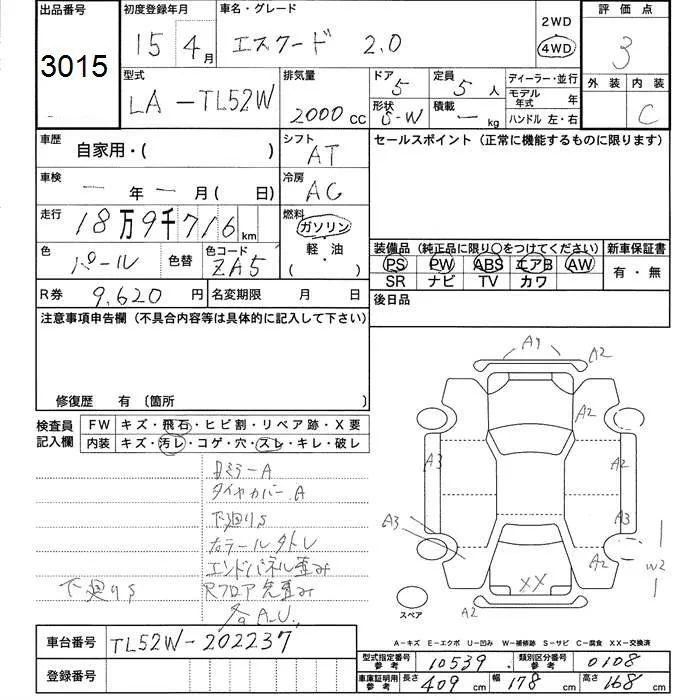 出品番号 初度登録年月 車名・グレード 2WD 評価点
3015 15 4月 エスクード 2.0 4WD 3
型式 排気量 ドア 定員 ディーラー・並行 外装 内装
LA-TL52W 2000cc 5 5人 モデル年式 年 C
形状 S-W 積載 ー kg ハンドル 左・右
車歴 自家用・( ) シフト AT セールスポイント(正常に機能するものに限ります)
車検 ー年ー月( 日) 冷房 AC
走行 18万9千716km 燃料 ガソリン
軽・油
・( )
色 パール 色替 色コード ZA5
装備品(純正品に限り○をつけてください) 新車保証書
PS PW ABS エアB AW 有・無
SR ナビ TV カワ
R券 9,620円 名変期限 月 日 後日品
注意事項申告欄(不具合内容等は具体的に記入して下さい)
修復歴 有〔箇所 〕
検査員記入欄 FW キズ・飛石・ヒビ割・リペア跡・X要
内装 キズ・汚レ・コゲ・穴・スレ・キレ・破レ
ミラーA
タイヤカバーA
下廻りS
カラールハトレ
エンドパネル歪み
下廻りS Rフロア先歪み
各A-U
A1 A2
A2
A3 A2
A3 A3
A2 W2
XX
A2
スペア
車台番号 TL52W-202237
登録番号
A-キズ E-エクボ U-凹み W-補修跡 S-サビ C-腐食 XX-交換済
型式指定番号 参考 10539 類別区分番号 参考 0108
車庫証明用 参考 長さ 409cm 幅 178cm 高さ 168cm